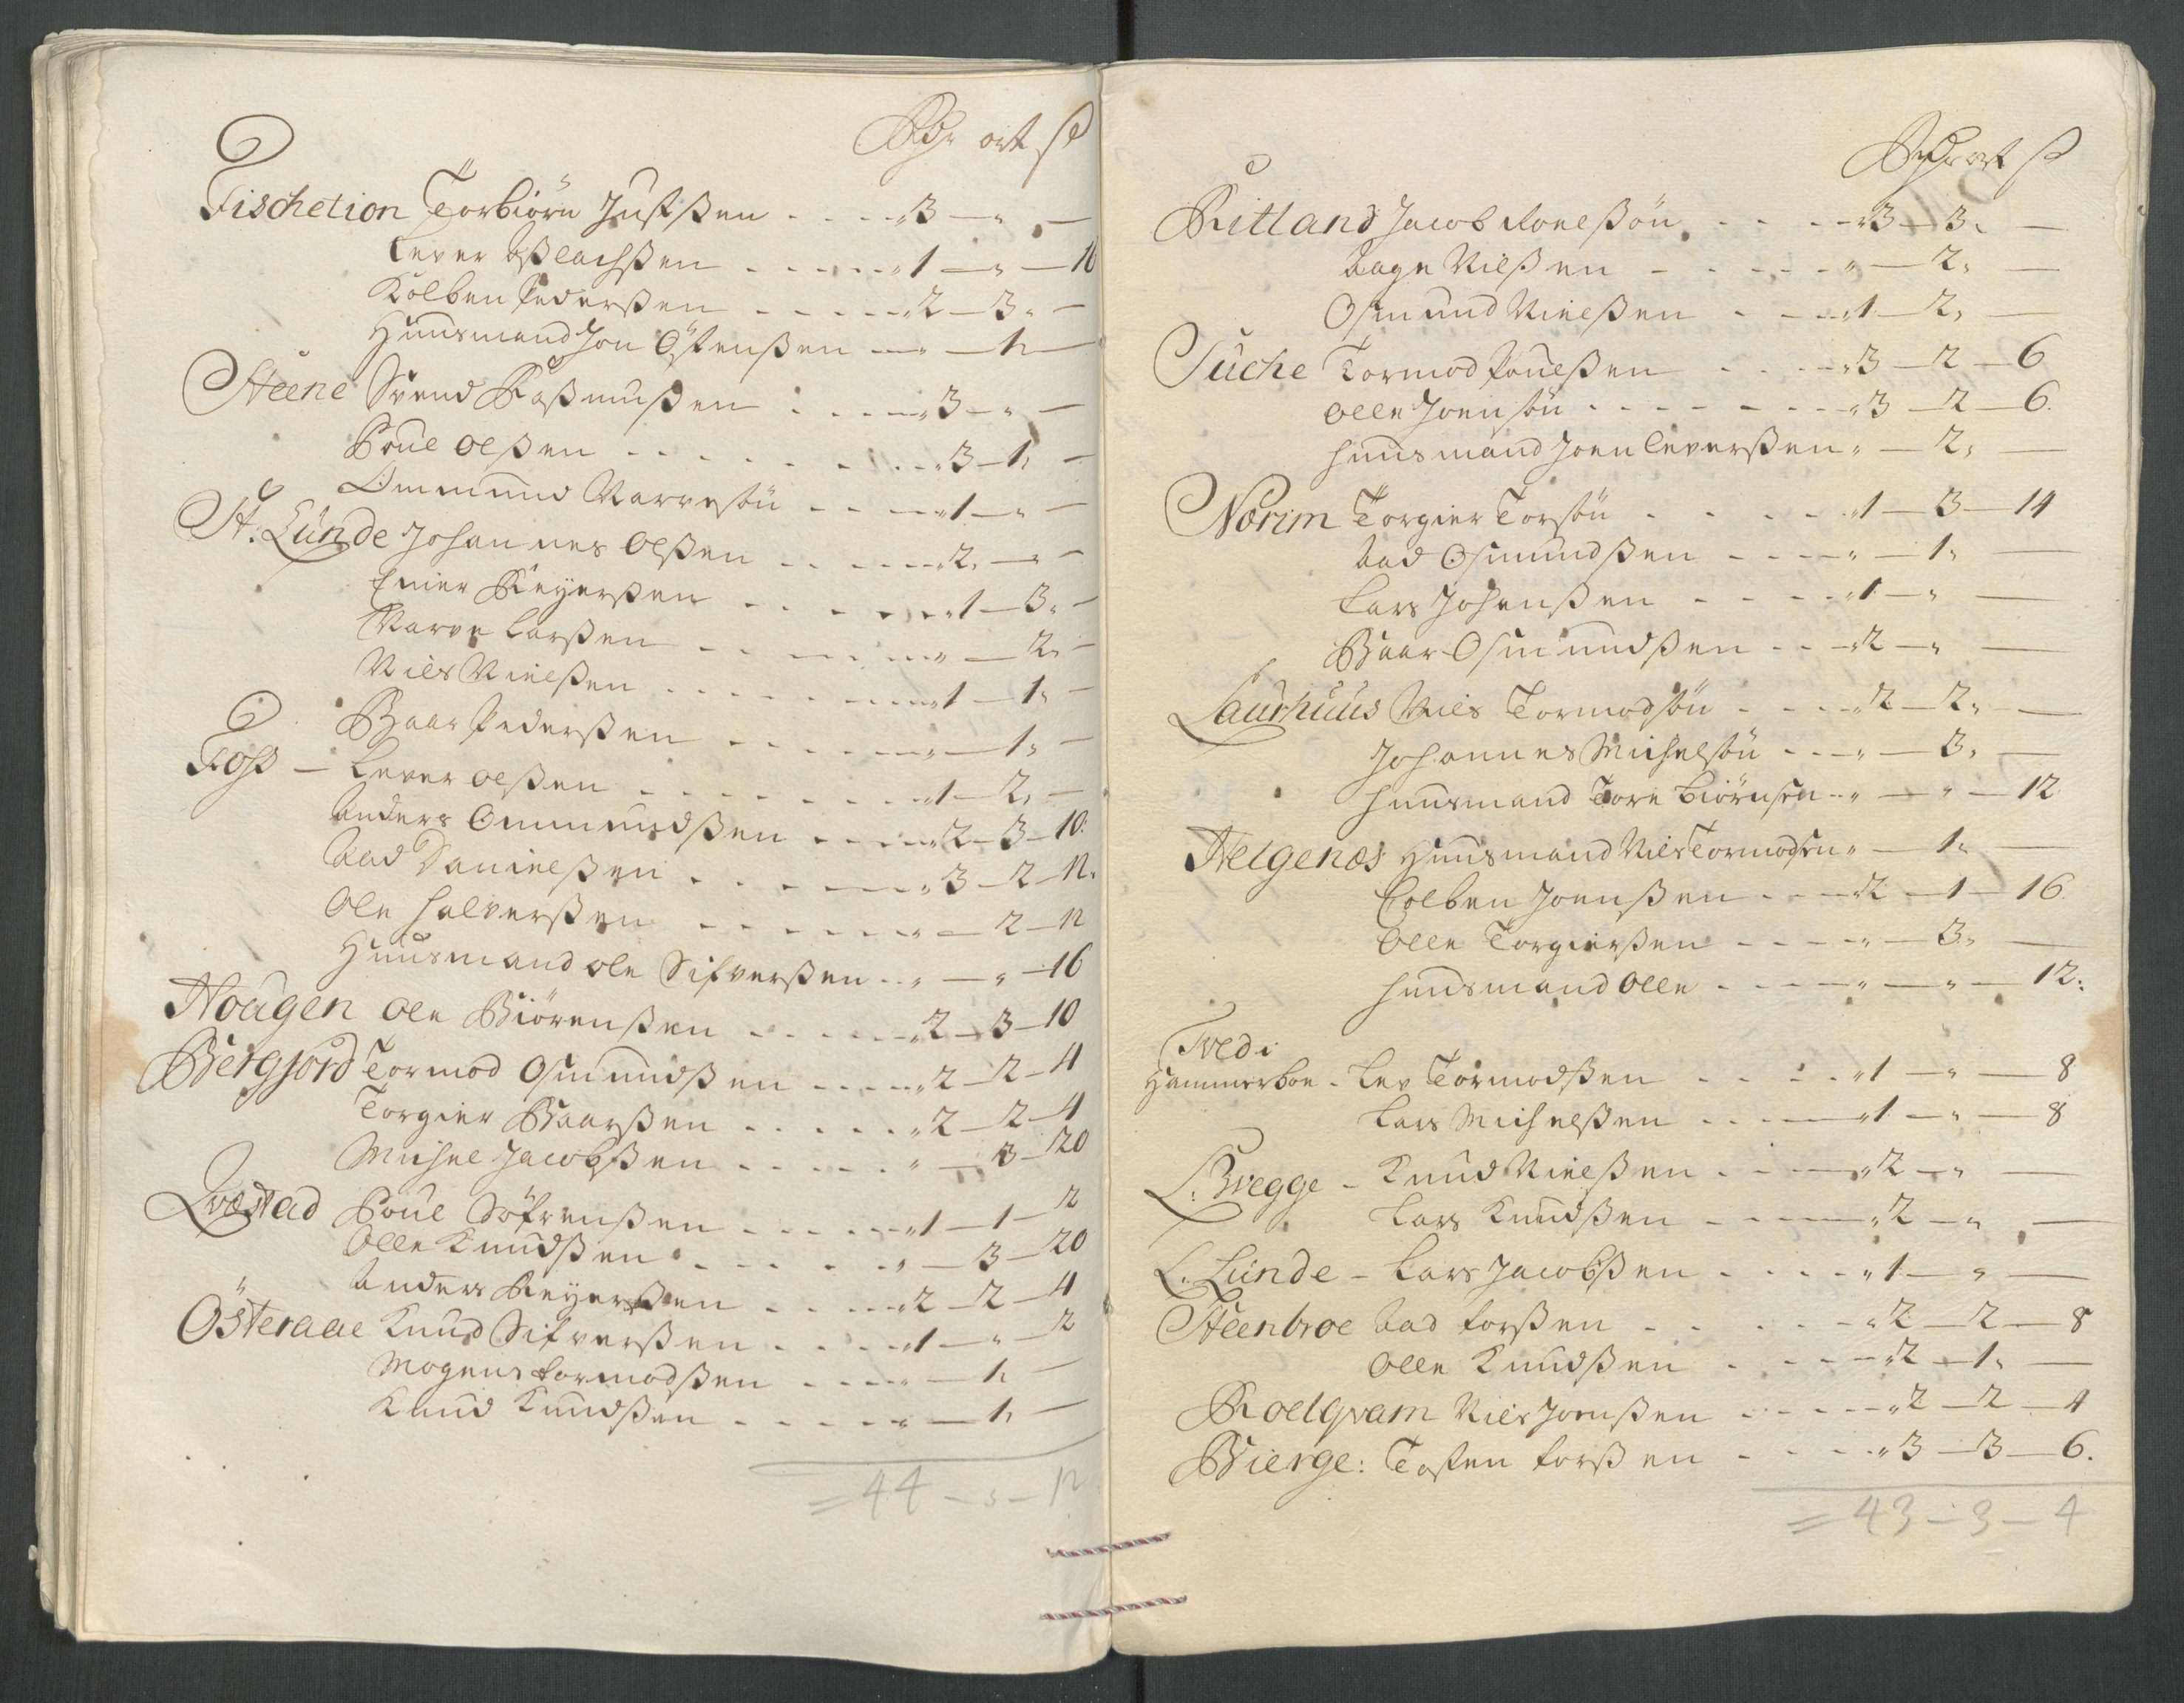 Rdr ort ß
Fischetion Torbiörn Justßen - - - - „3 — „ —
Lever Aßlachßen - - - - - „1 — „ — 16
Kolben Pederßen - - - - - „2 — 3 „ —
Huusmand Jon Östenßen — „ — 1 „ —
Steene Svend Raßmußen - - - - „3 — „ —
Poul Olßen - - - - - - - „3 — 1 „ —
Ommund Narvesön - - - - „1 — „ —
St. Lunde Johannes Olßen - - - - - „2 „ — „ —
Einer Reyerßen - - - - - - „1 — 3 „ —
Narve Larßen - - - - - - „ — 2 „ —
Niels Nielßen - - - - - - - „1 — 1 „ —
Baar Pederßen - - - - - - „ — 1 „ —
Foss — Lever Olßen - - - - - - - „1 — 2 „ —
Anders Ommundßen - - - - „2 — 3 — 10
Aad Danielßen - - - - - - „3 — 2 — 12
Ole Halverßen - - - - - - „ — 2 — 12
Huusmand Ole Sifverßen - - „ — „ — 16
Hougen Ole Biörenßen - - - - - „2 — 3 — 10
Bergsord Tormod Osmundßen - - - - „2 — 2 — 4
Torgier Baarßen - - - - - - „2 — 2 — 4
Michel Jacobßen - - - - - „ — 3 — 20
Qvæstad Poul Söfrenßen - - - - - - „1 — 1 — 2
Olle Knudßen - - - - - - „ — 3 — 20
Anders Reyerßen - - - - - „2 — 2 — 4
Österaae Knud Sifverßen - - - - „1 — „ — 2
Mogens Tormodßen - - - - „ — 1 „ —
Knud Knudßen - - - - - - „ — 1 „ —
= 44 — 3 — 12
Rdr ort ß
Ritland Jacob Poulßön - - - - „3 — 3 „ —
Aage Nilßen - - - - - „ — 2 „ —
Osmund Nielßen - - - - „1 — 2 „ —
Suche Tormod Poulßen - - - - „3 — 2 — 6
Olle Joensön - - - - - - - „3 — 2 — 6
Huusmand Joen Leverßen „ — 2 „ —
Nærim Torgier Torsön - - - - - „1 — 3 — 14
Aad Osmundßen - - - - „ — 1 „ —
Lars Johanßen - - - - „1 — „ —
Baar Osmundßen - - - „2 — „ —
Laurhuus Niels Tormodsön - - - - „2 — 2 „ —
Johannes Michelsön - - - „ — 3 „ —
Huusmand Tore Biörnsen - - „ — „ — 12
Helgenæs Huusmand Niels Tormodsn „ — 1 „ —
Colben Joenßen - - - - „2 — 1 — 16
Olle Torgierßen - - - - „ — 3 „ —
Huusmand Olle - - - - „ — „ — 12
Tved i
Hammerboe - Lev Tormodßen - - - - „1 — „ — 8
Lars Michelßen - - - - „1 — „ — 8
L. Qvegge - Knud Nielßen - - - - „2 — „ —
Lars Knudßen - - - - „2 — „ —
L. Lunde - Lars Jacobßen - - - - „1 — „ —
Steenbroe Aad Torßen - - - - - „2 — 2 — 8
Olle Knudßen - - - - „2 — 1 „ —
Roelqvam Niels Joenßen - - - - „2 — 2 — 4
Bierge: Tosten Torßen - - - - „3 — 3 — 6
= 43 — 3 — 4